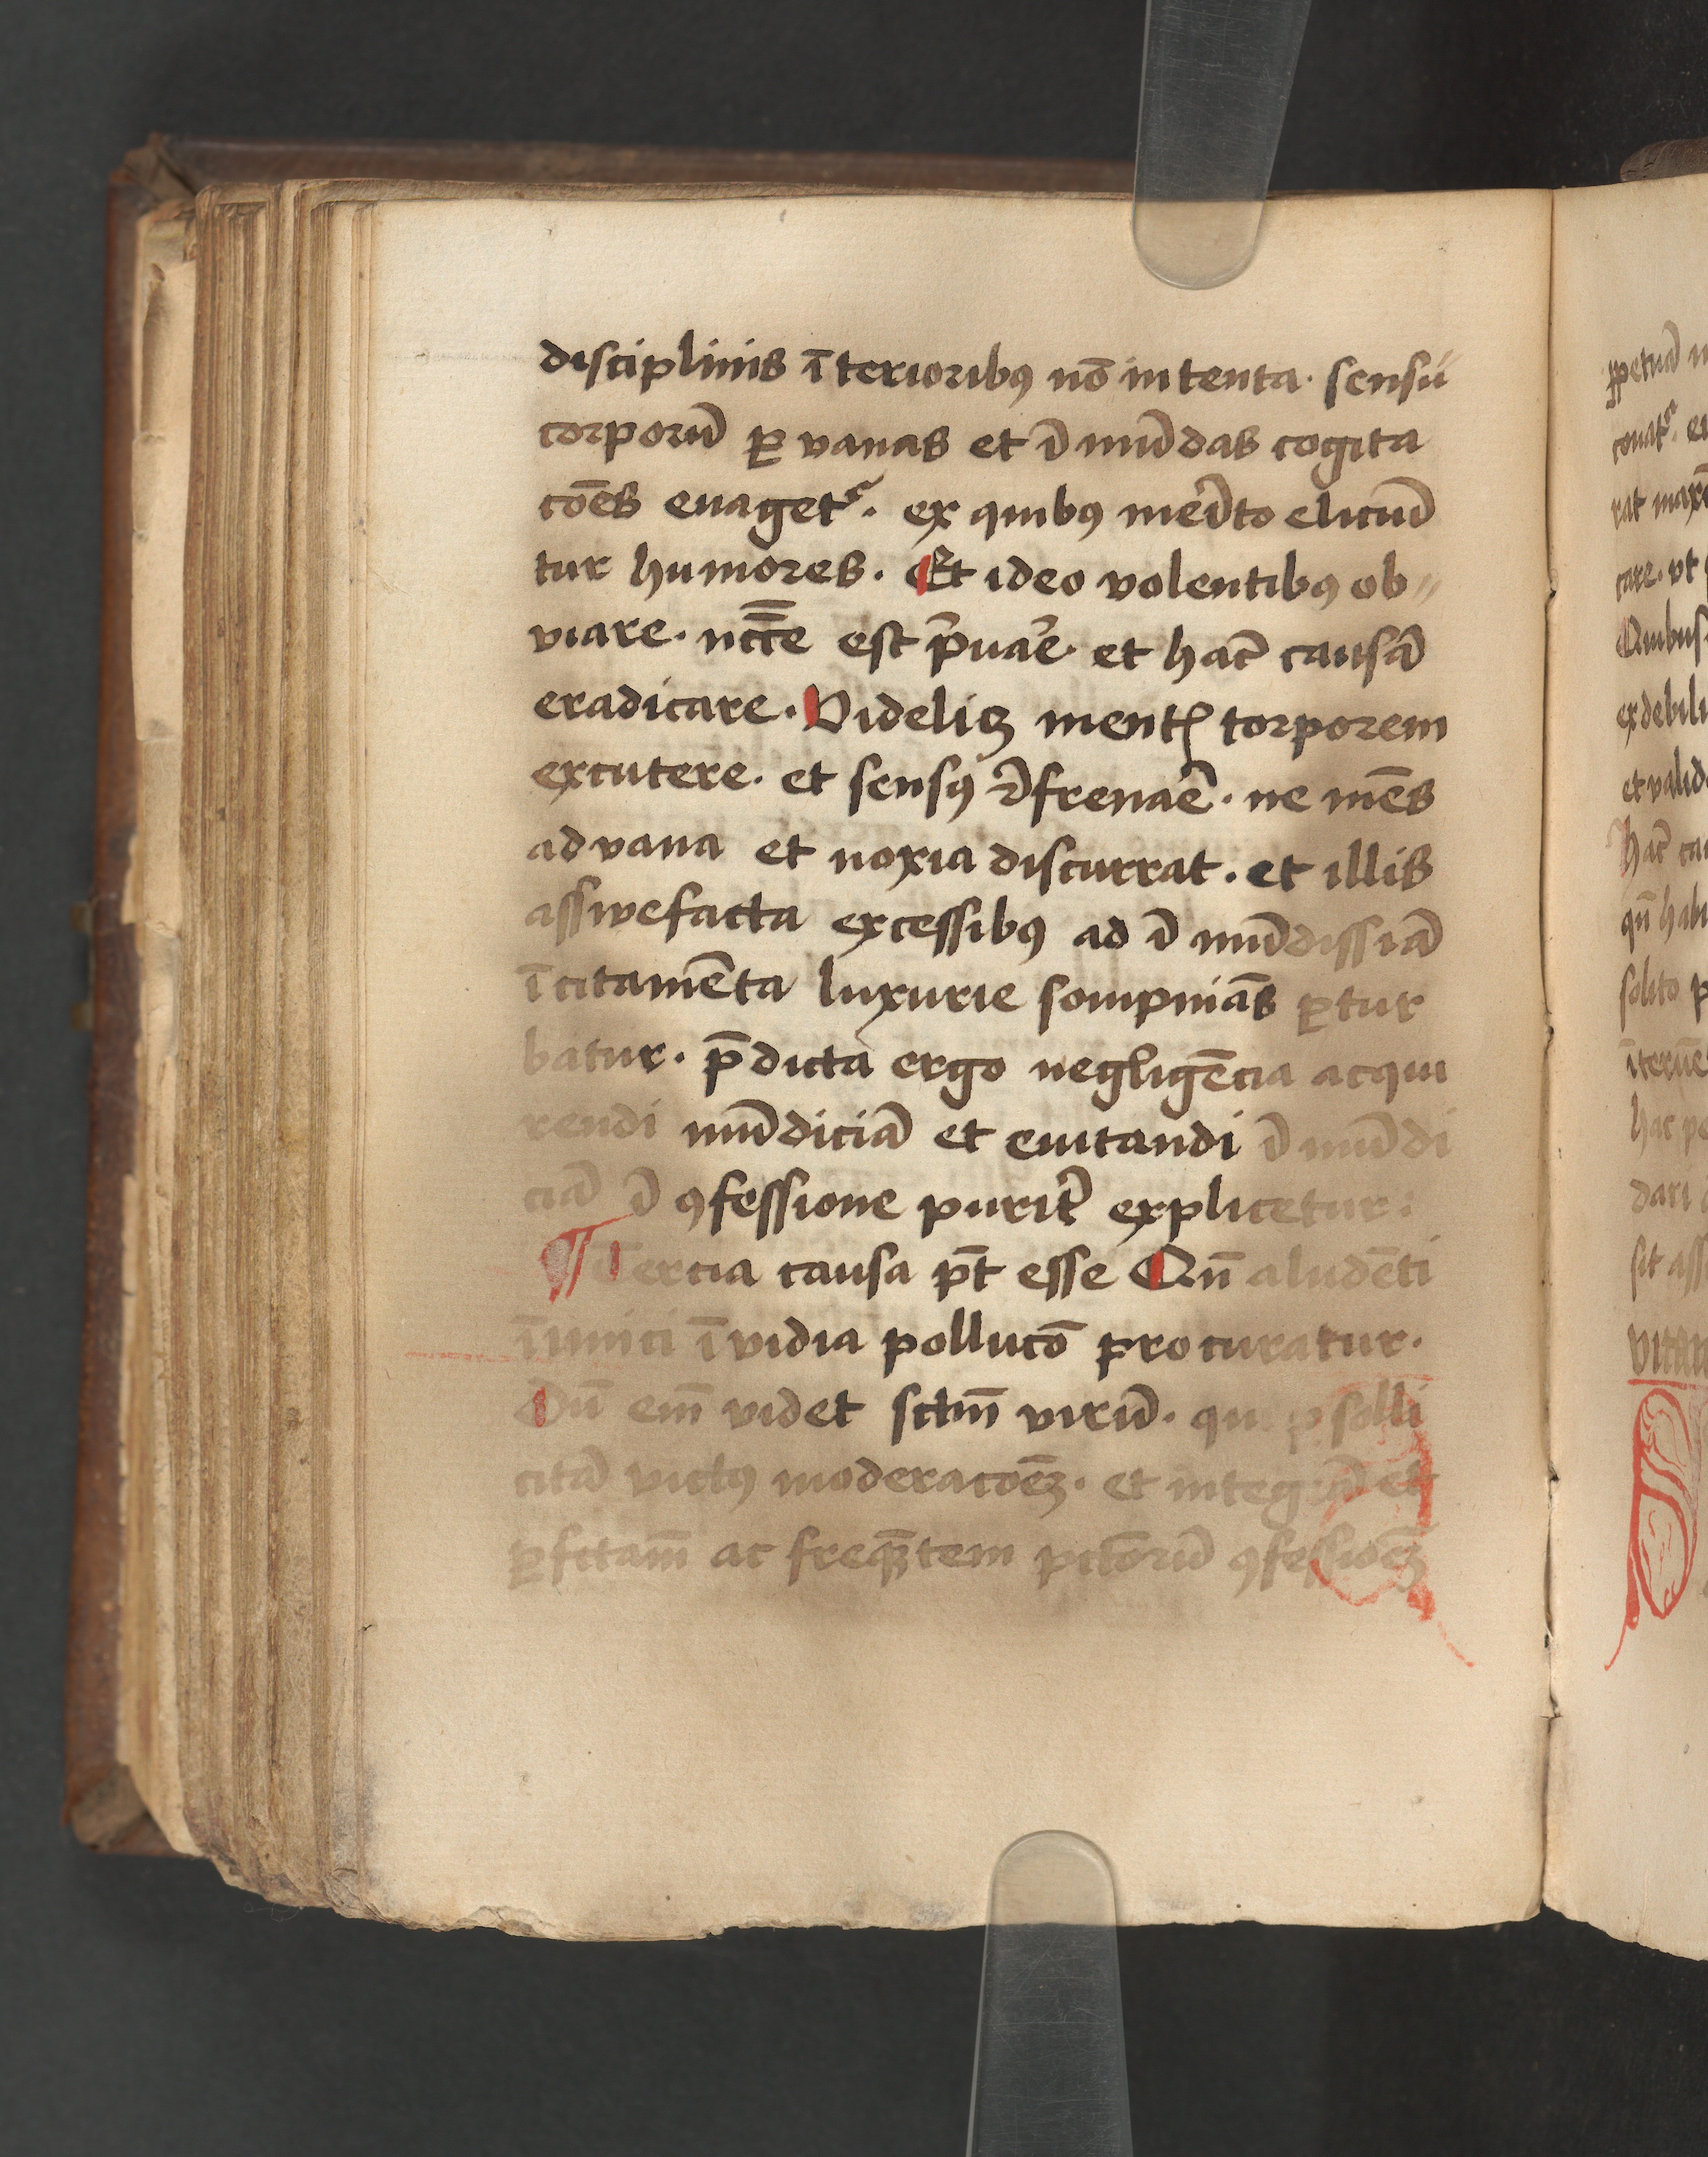 disciplinis īterioribꝰ nō intenta. sensū
corporū ꝑ vanas et īmūdas cogita
cōēs euagetᷣ. ex quibꝰ meīto elicūd
tur humores. Et ideo volentibꝰ ob〃
viare. nccē̄ est p̄uāē. et hāc causā
eradicare. Videlicꝫ mentꝭ torporem
excutere. et sensꝰ refrenāē. ne mēs
ad vana et noxia discurrat. et illis
asswefacta excessibꝰ ad īmūdissiā
īcitamēta luxurie sompniās ꝑtur
batur. p̄dicta ergo negligēcia acqui
rendi mūdiciā et euitandi īmūdi
ciā ī ꝯfessione purit̄ explicetur.
¶ Tercia causa pt̄ esse Qn̄ aludēti
īimici īvidia pollucō procuratur.
Dū em̄ videt sctm̄ virū. qui p solli
citā victꝰ moderacōēꝫ. et integrā et
ꝑfctam̄ ac freq̄ꝫtem pctōrū ꝯfessiōēꝫ
ꝑpetuā
rat
care. vt
Quibus
ex debili
et valid
hāc
qn̄
solito
hac
dari
sit